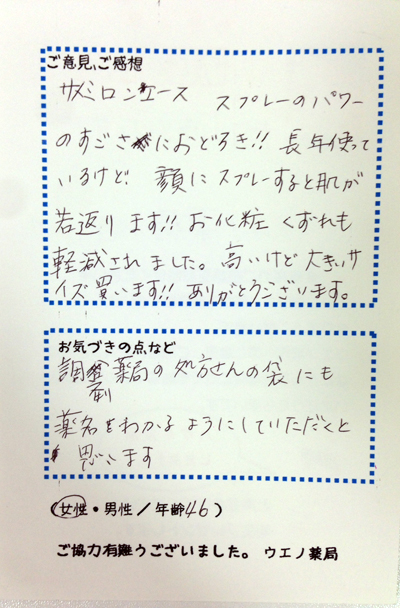 ご意見、ご感想
サミロンエース スプレーのパワー
のすごさにおどろき!! 長年使って
いるけど、顔にスプレーすると肌が
若返ります!! お化粧くずれも
軽減されました。高いけど大きいサ
イズ買います!! ありがとうございます。
お気づきの点など
調剤薬局の処方せんの袋にも
薬名をわかるようにしていただくと
思います
(女性・男性/年齢46)
ご協力有難うございました。 ウエノ薬局